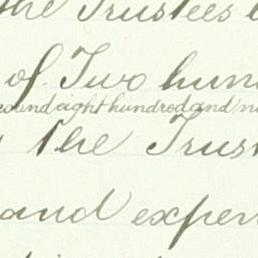 the Trustees
of Two hun
ound eight hundred and n
the Trust
and expen